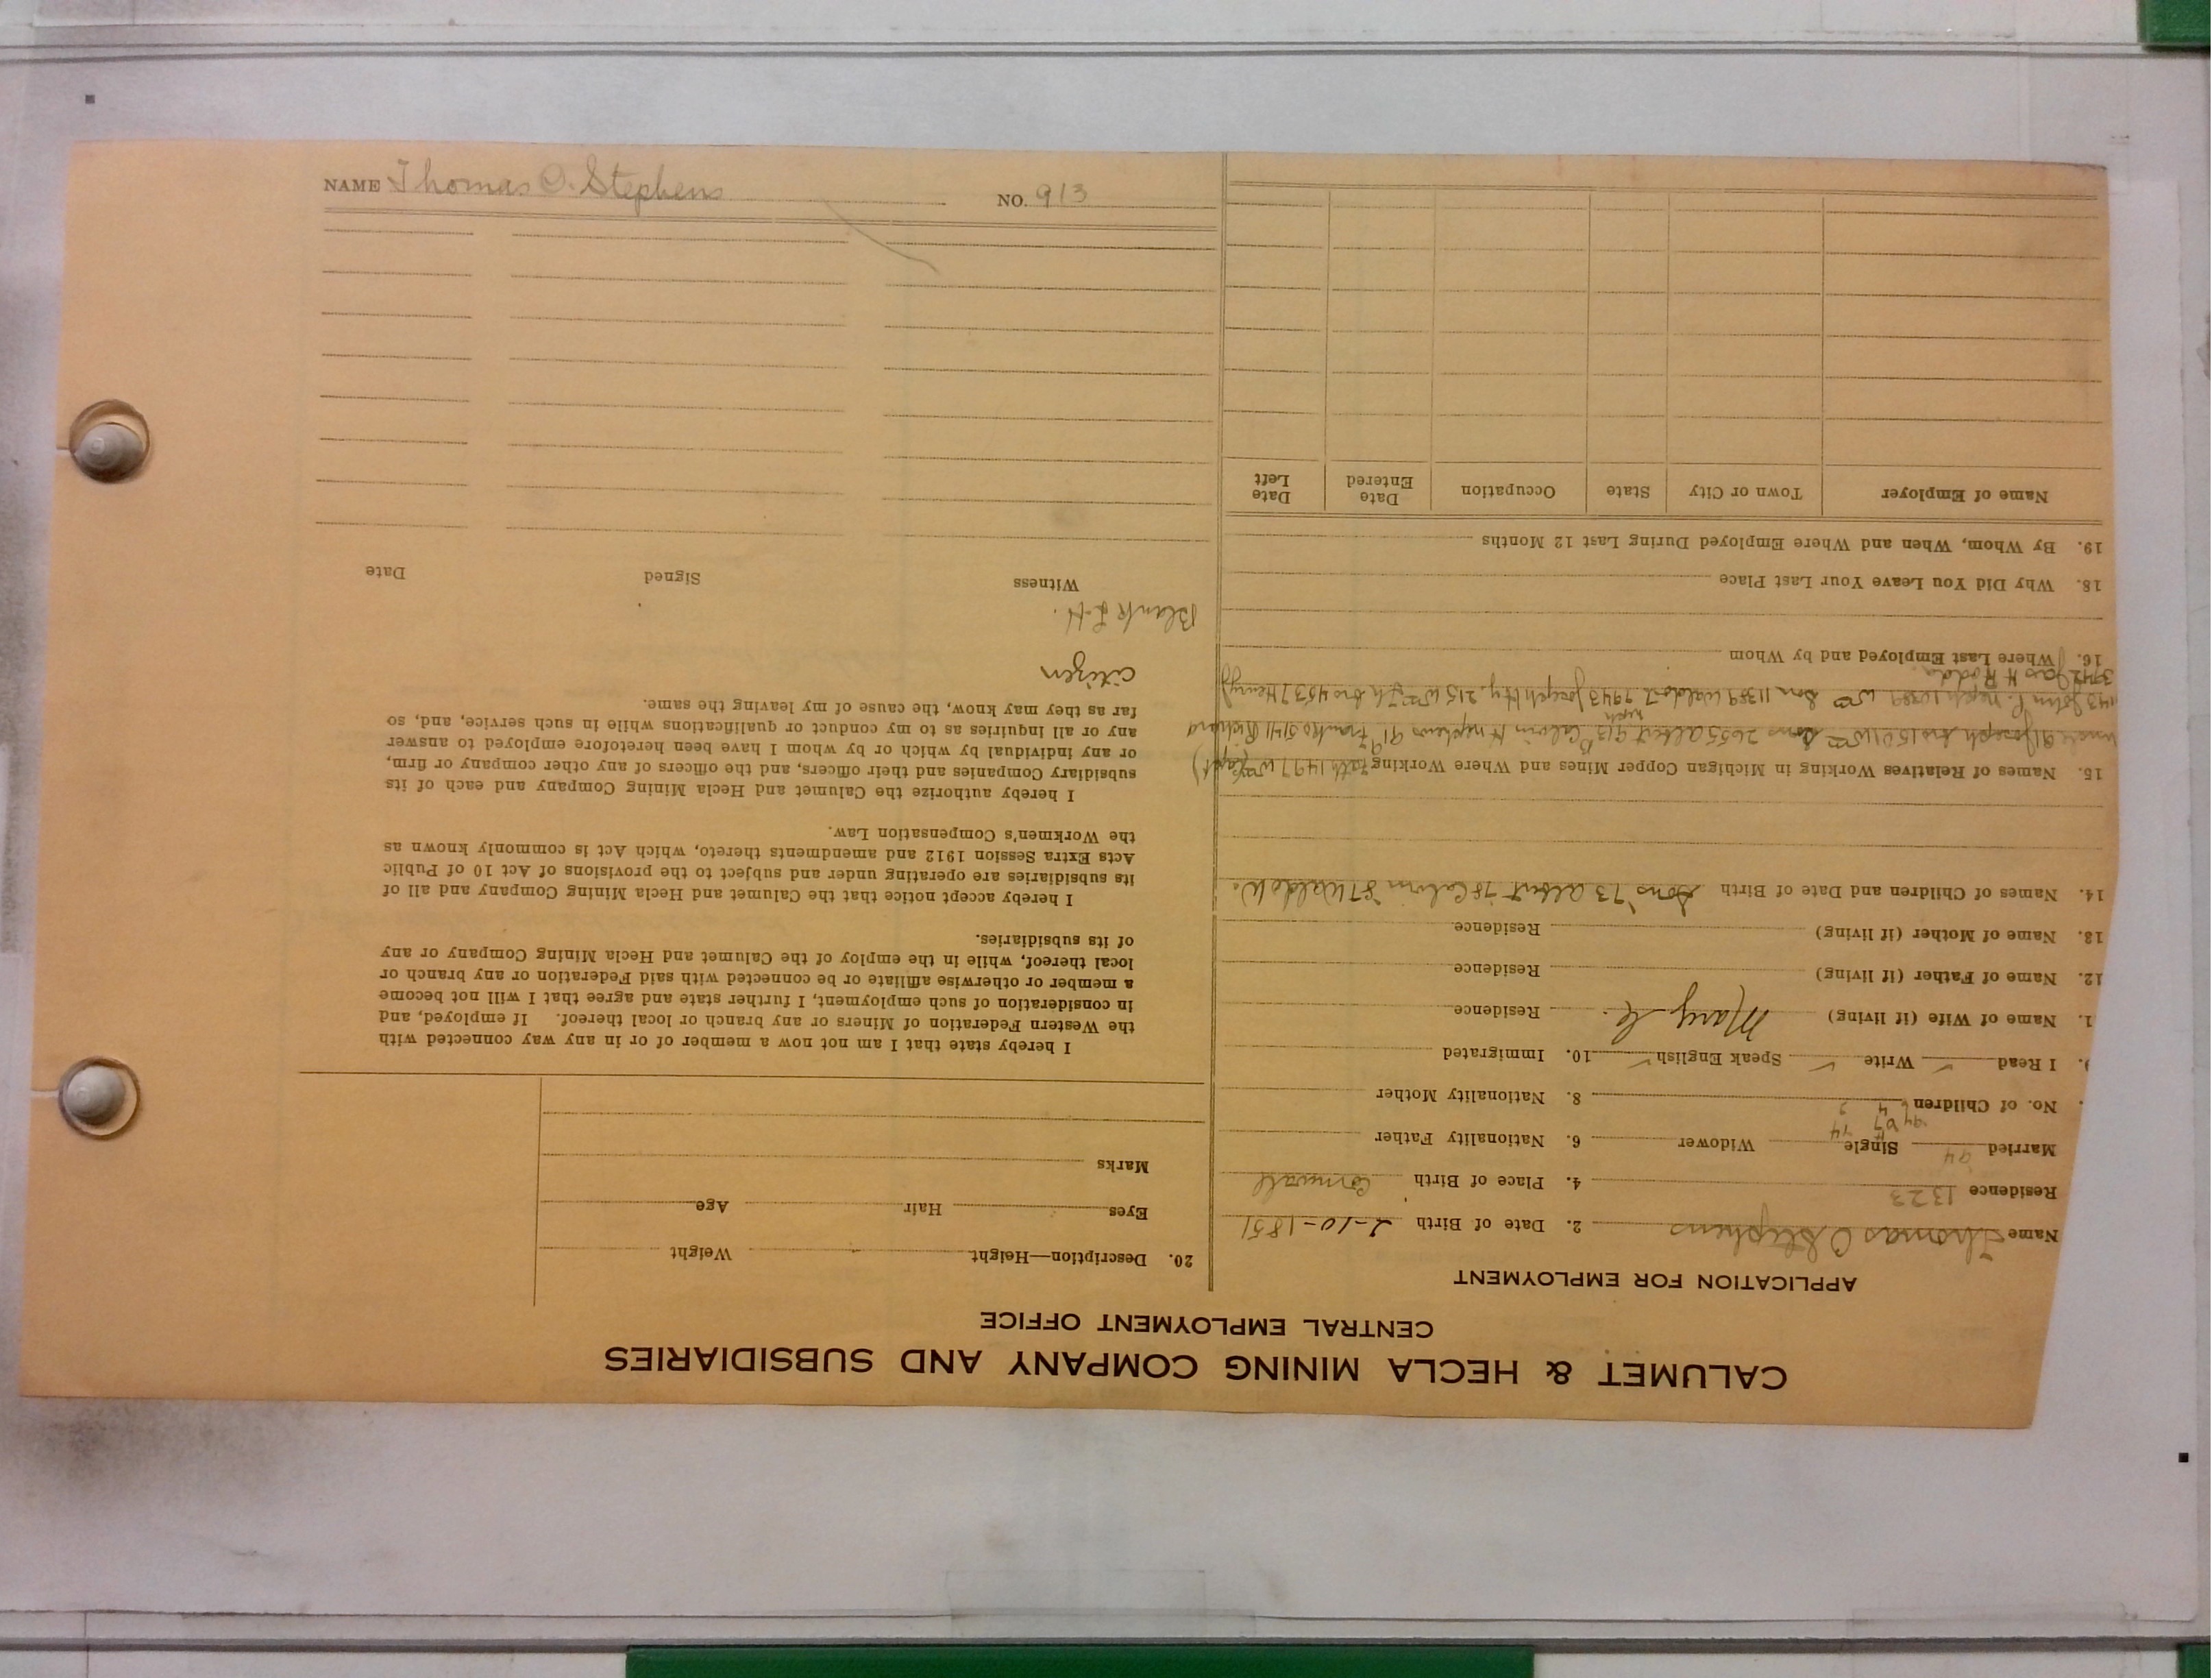 CALUMET & HECLA MINING COMPANY AND SUBSIDIARIES
CENTRAL EMPLOYMENT OFFICE
APPLICATION FOR EMPLOYMENT
Name Thomas O Stephens 2. Date of Birth 2-10-1851
Residence 1323 4. Place of Birth Cornwall
Married 94 Single 74 Widower 6. Nationality Father
94 87
No. of Children 6 4 2 8. Nationality Mother
9. I Read ✓ Write ✓ Speak English ✓ 10. Immigrated
1. Name of Wife (if living) Mary C. Residence
12. Name of Father (if living) Residence
13. Name of Mother (if living) Residence
14. Names of Children and Date of Birth Sons '73 Albert '78 Calvin '87 Waldo W.
15. Names of Relatives Working in Michigan Copper Mines and Where Working Fath 1497 Wm (Capt)
Uncle 91 Joseph bro 1501 Wm Sons 2655 Albert 913 Calvin H nephews 91 Frank 5141 Richard
neph
1143 John P. neph 10389 Wm Son 11389 Waldo 7943 Joseph Hy. 215 Wm J h bro 4537 Henry
3742 Jas H Rodda
16. Where Last Employed and by Whom
18. Why Did You Leave Your Last Place
19. By Whom, When and Where Employed During Last 12 Months
Name of Employer Town or City State Occupation Date Entered Date Left
20. Description—Height Weight
Eyes Hair Age
Marks
I hereby state that I am not now a member of or in any way connected with
the Western Federation of Miners or any branch or local thereof. If employed, and
in consideration of such employment, I further state and agree that I will not become
a member or otherwise affiliate or be connected with said Federation or any branch or
local thereof, while in the employ of the Calumet and Hecla Mining Company or any
of its subsidiaries.
I hereby accept notice that the Calumet and Hecla Mining Company and all of
its subsidiaries are operating under and subject to the provisions of Act 10 of Public
Acts Extra Session 1912 and amendments thereto, which Act is commonly known as
the Workmen's Compensation Law.
I hereby authorize the Calumet and Hecla Mining Company and each of its
subsidiary Companies and their officers, and the officers of any other company or firm,
or any individual by which or by whom I have been heretofore employed to answer
any or all inquiries as to my conduct or qualifications while in such service, and, so
far as they may know, the cause of my leaving the same.
citizen
Blank
Witness Signed Date
NAME Thomas O. Stephens NO. 913